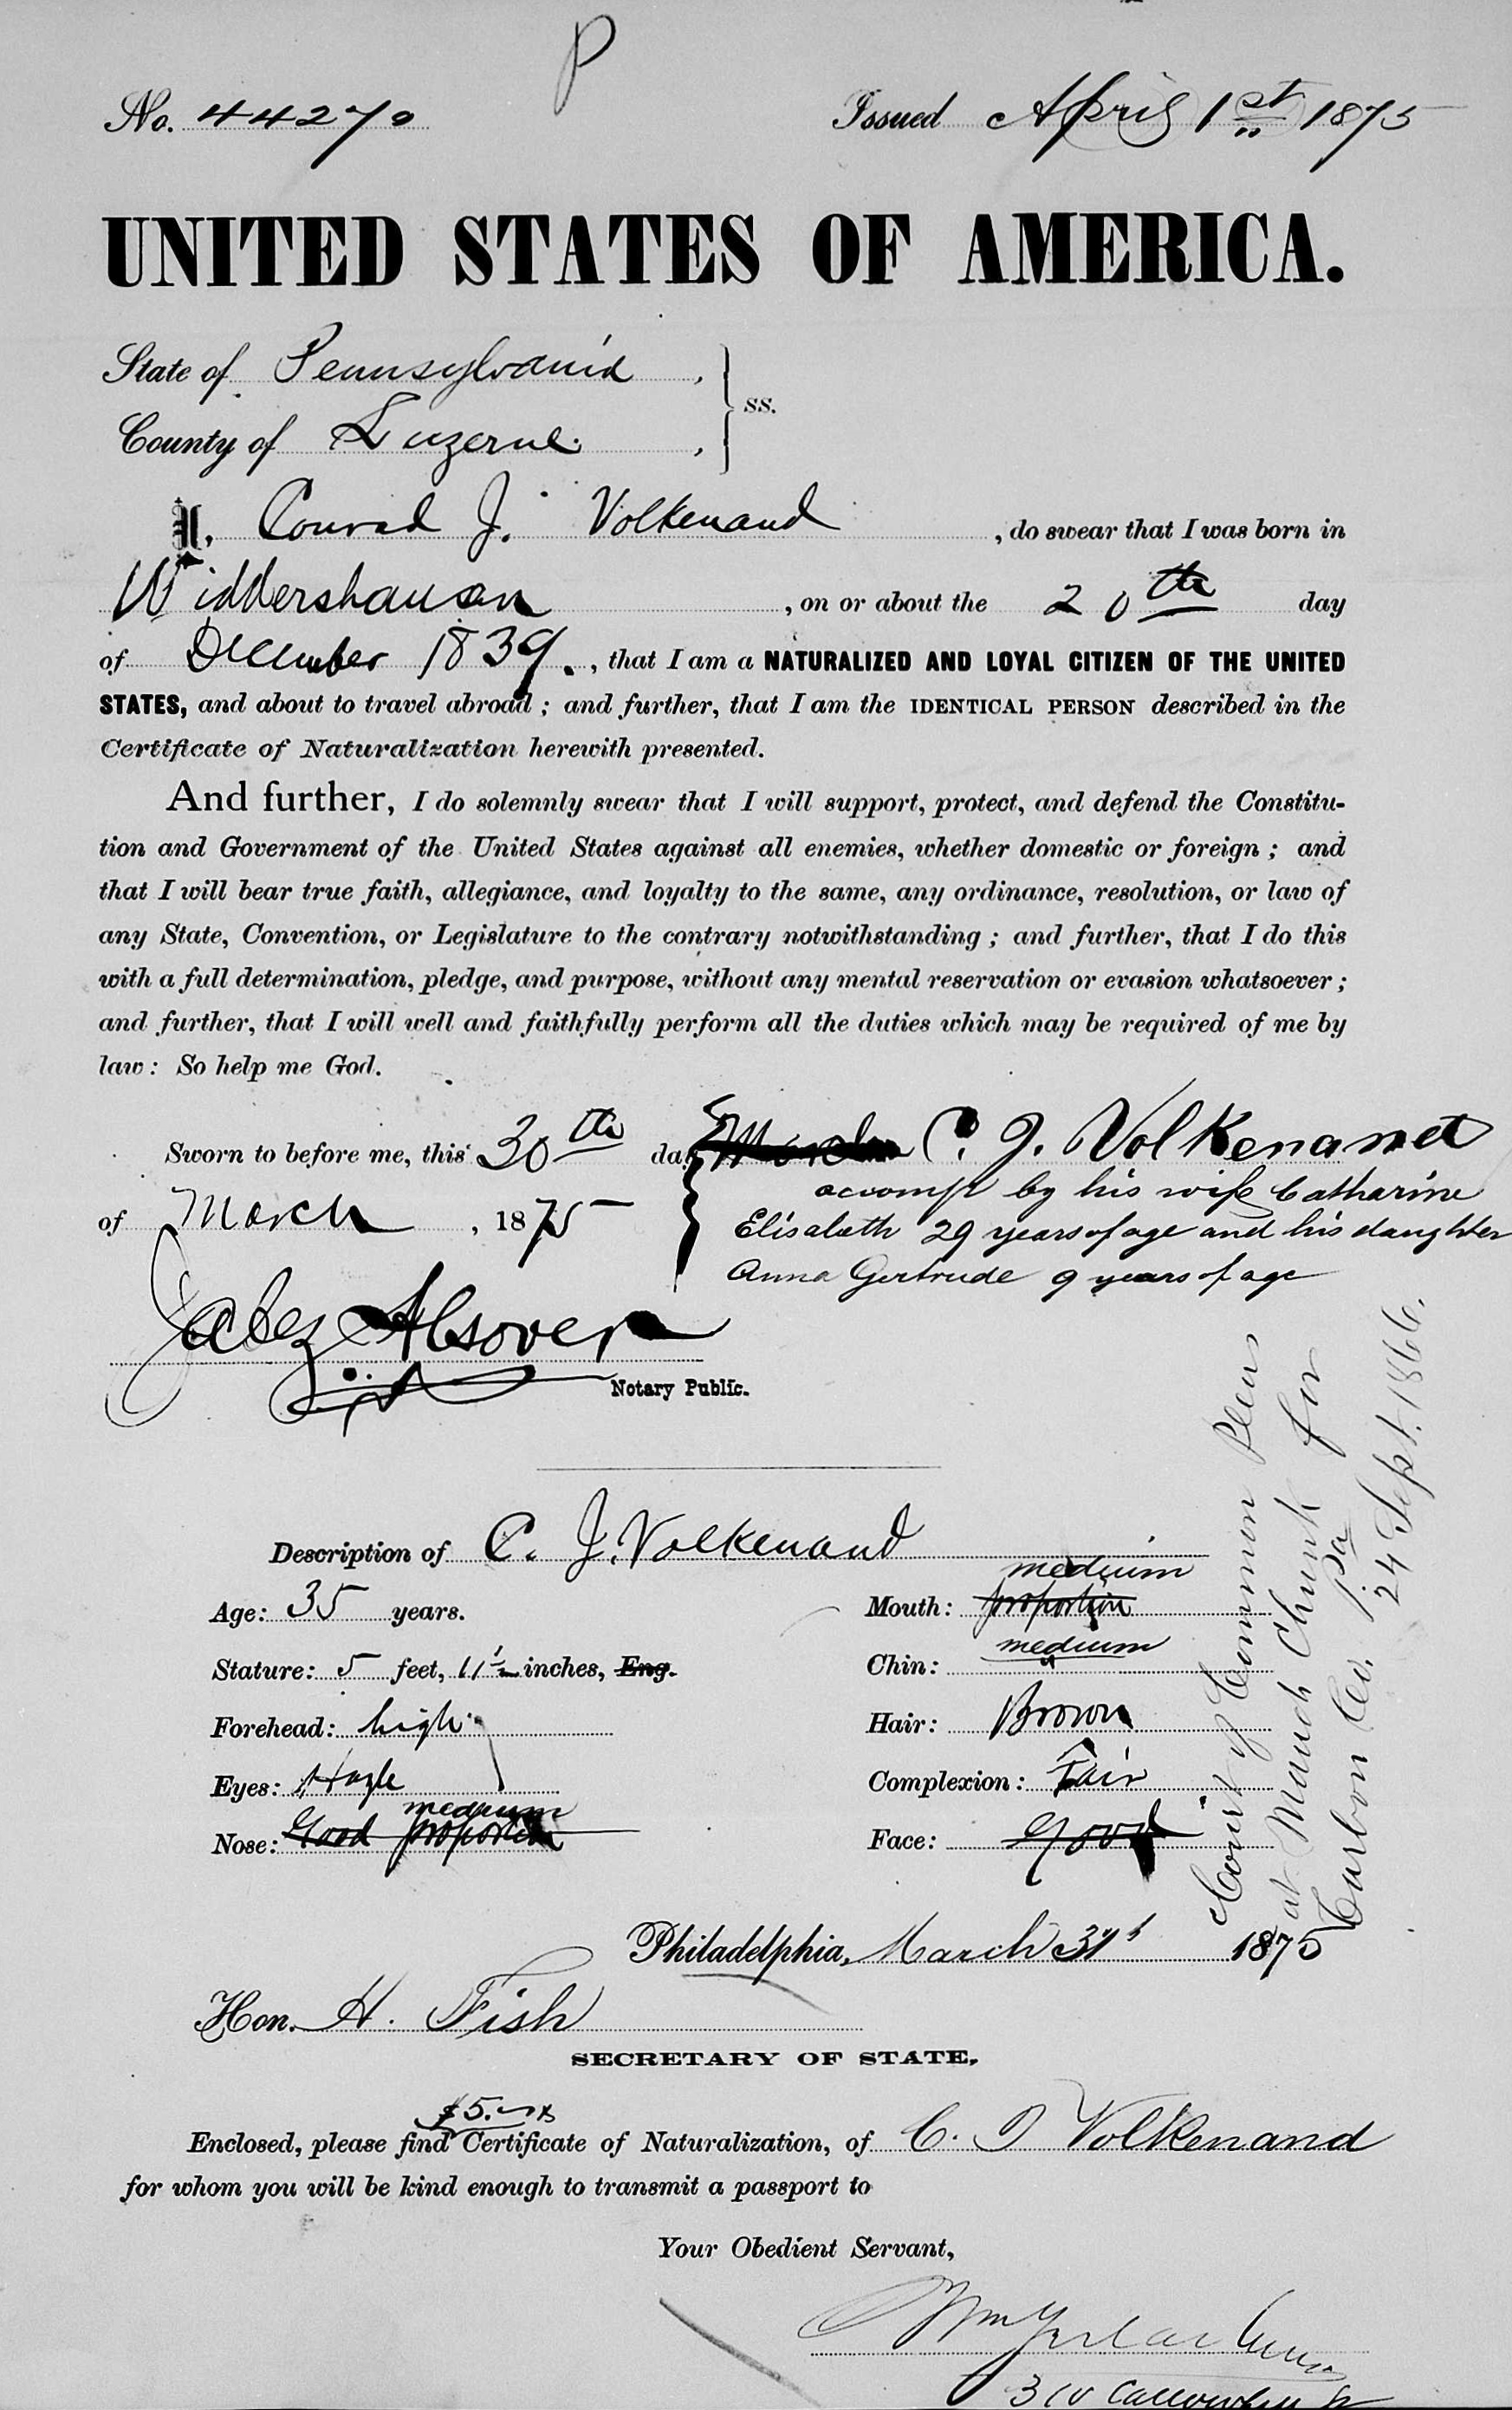 P
No. 44270 Issued April 1st 1875
UNITED STATES OF AMERICA.
State of Pennsylvania,
County of Luzerne, } ss.
I, Conrad J. Volkenand, do swear that I was born in
Widdershausen, on or about the 20th day
of December 1839., that I am a NATURALIZED AND LOYAL CITIZEN OF THE UNITED
STATES, and about to travel abroad; and further, that I am the IDENTICAL PERSON described in the
Certificate of Naturalization herewith presented.
And further, I do solemnly swear that I will support, protect, and defend the Constitu-
tion and Government of the United States against all enemies, whether domestic or foreign; and
that I will bear true faith, allegiance, and loyalty to the same, any ordinance, resolution, or law of
any State, Convention, or Legislature to the contrary notwithstanding; and further, that I do this
with a full determination, pledge, and purpose, without any mental reservation or evasion whatsoever;
and further, that I will well and faithfully perform all the duties which may be required of me by
law: So help me God.
Sworn to before me, this 30th day C. J. Volkenand
of March, 1875
accompt by his wife Catharine
Elisabeth 29 years of age and his daughter
Anna Gertrude 9 years of age
Jabez Alsover
Notary Public.
Court of Common Pleas
at Mauch Chunk for
Carbon Co. Pa
24 Sept. 1866.
Description of C. J. Volkenand
Age: 35 years.
Stature: 5 feet, 11½ inches, Eng.
Forehead: high
Eyes: Hazle
Nose: Good proportion medium
Mouth: proportion medium
Chin: medium
Hair: Brown
Complexion: Fair
Face: Good
Philadelphia, March 31st 1875
Hon. H. Fish
SECRETARY OF STATE.
$5.
Enclosed, please find Certificate of Naturalization, of C. J Volkenand
for whom you will be kind enough to transmit a passport to
Your Obedient Servant,
310 Callowhill St